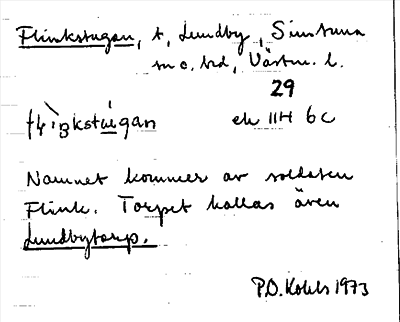 Flinkstugan, t, Lundby, Simtuna
sn o. hd, Västm. l.
29
flìŋkstúgan ek 11H 6c
Namnet kommer av soldaten
Flink. Torpet kallas även
Lundbytorp.
P.O. Kohls 1973